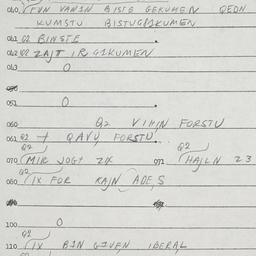 040 (FVN VANIN BISTE GEKUMEN QEDN
KUMSTU BISTUGIKUMEN
041 Q2 BINSTE .
042 Q2 ZAJT IR GIKUMEN
043 0
051 0
060 Q2 VIHIN FORSTU
061 Q2 + QAVU FORSTU .
Q2
070 (MIR JOGI ZIX 071 (HAJLN 23
Q2
080 (IX FOR KAJN ADES
100 0
110 (IX BIN GIVEN IBERAL